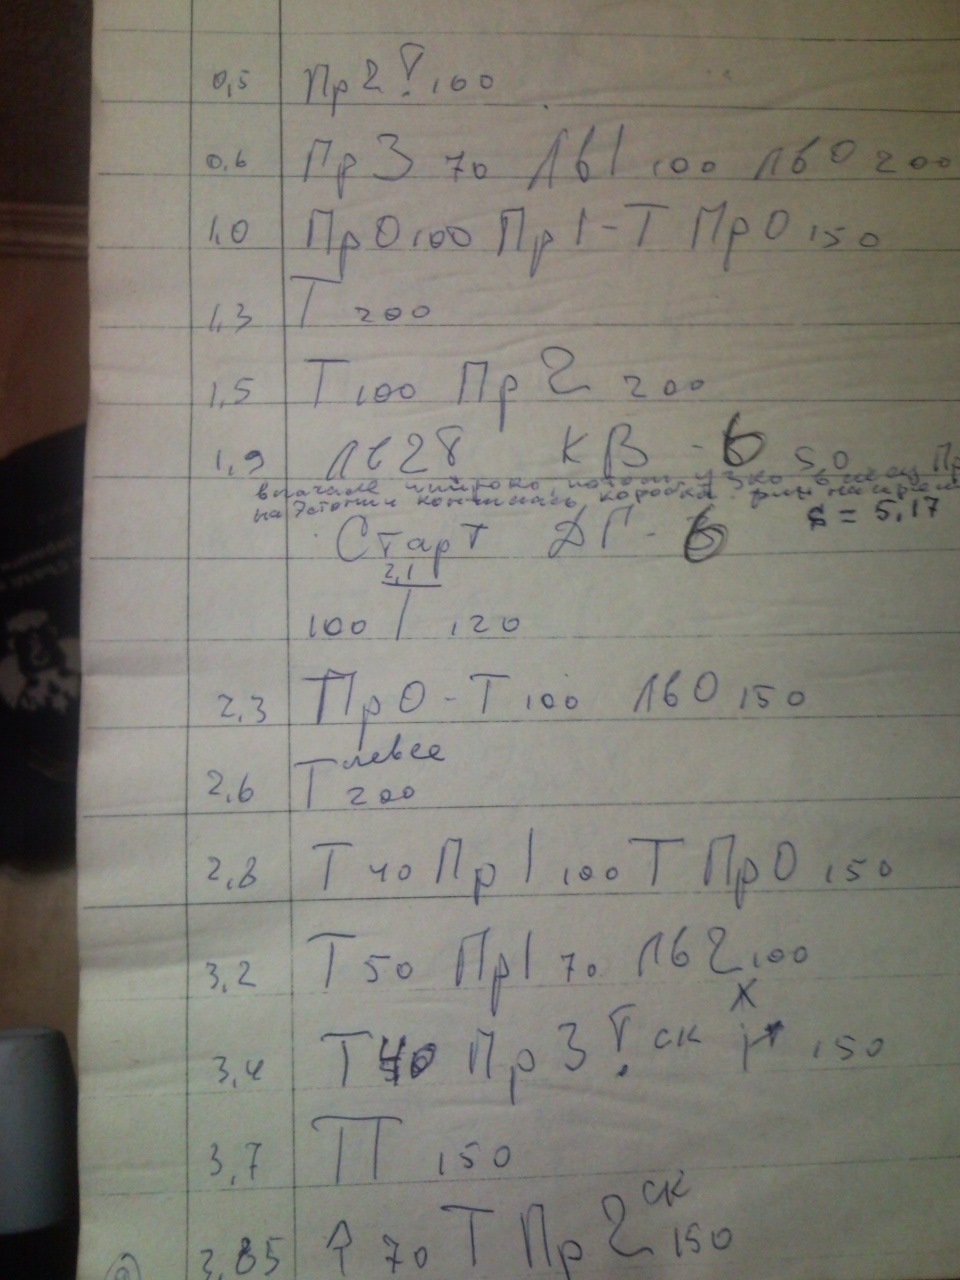 0,5 Пр2! 100
0,6 Пр3 70 Лв1 100 Лв0 200
1,0 Пр0 100 Пр1-Т Пр0 150
1,3 Т 200
1,5 Т 100 Пр2 200
1,9 Лв2 КВ-6 50 Пр
вначале широко, потом узко в
на Эстонии кончилась коробка S = 5,17
Старт ДГ-6
2,1
100 / 120
2,3 Пр0-Т 100 Лв0 150
левее
2,6 Т 200
2,8 Т 40 Пр1 100 Т Пр0 150
3,2 Т 50 Пр1 70 Лв2 100
3,4 Т 40 Пр3! ск Х 150
3,7 ТТ 150
3,85 ↑ 70 Т Пр2 ск 150